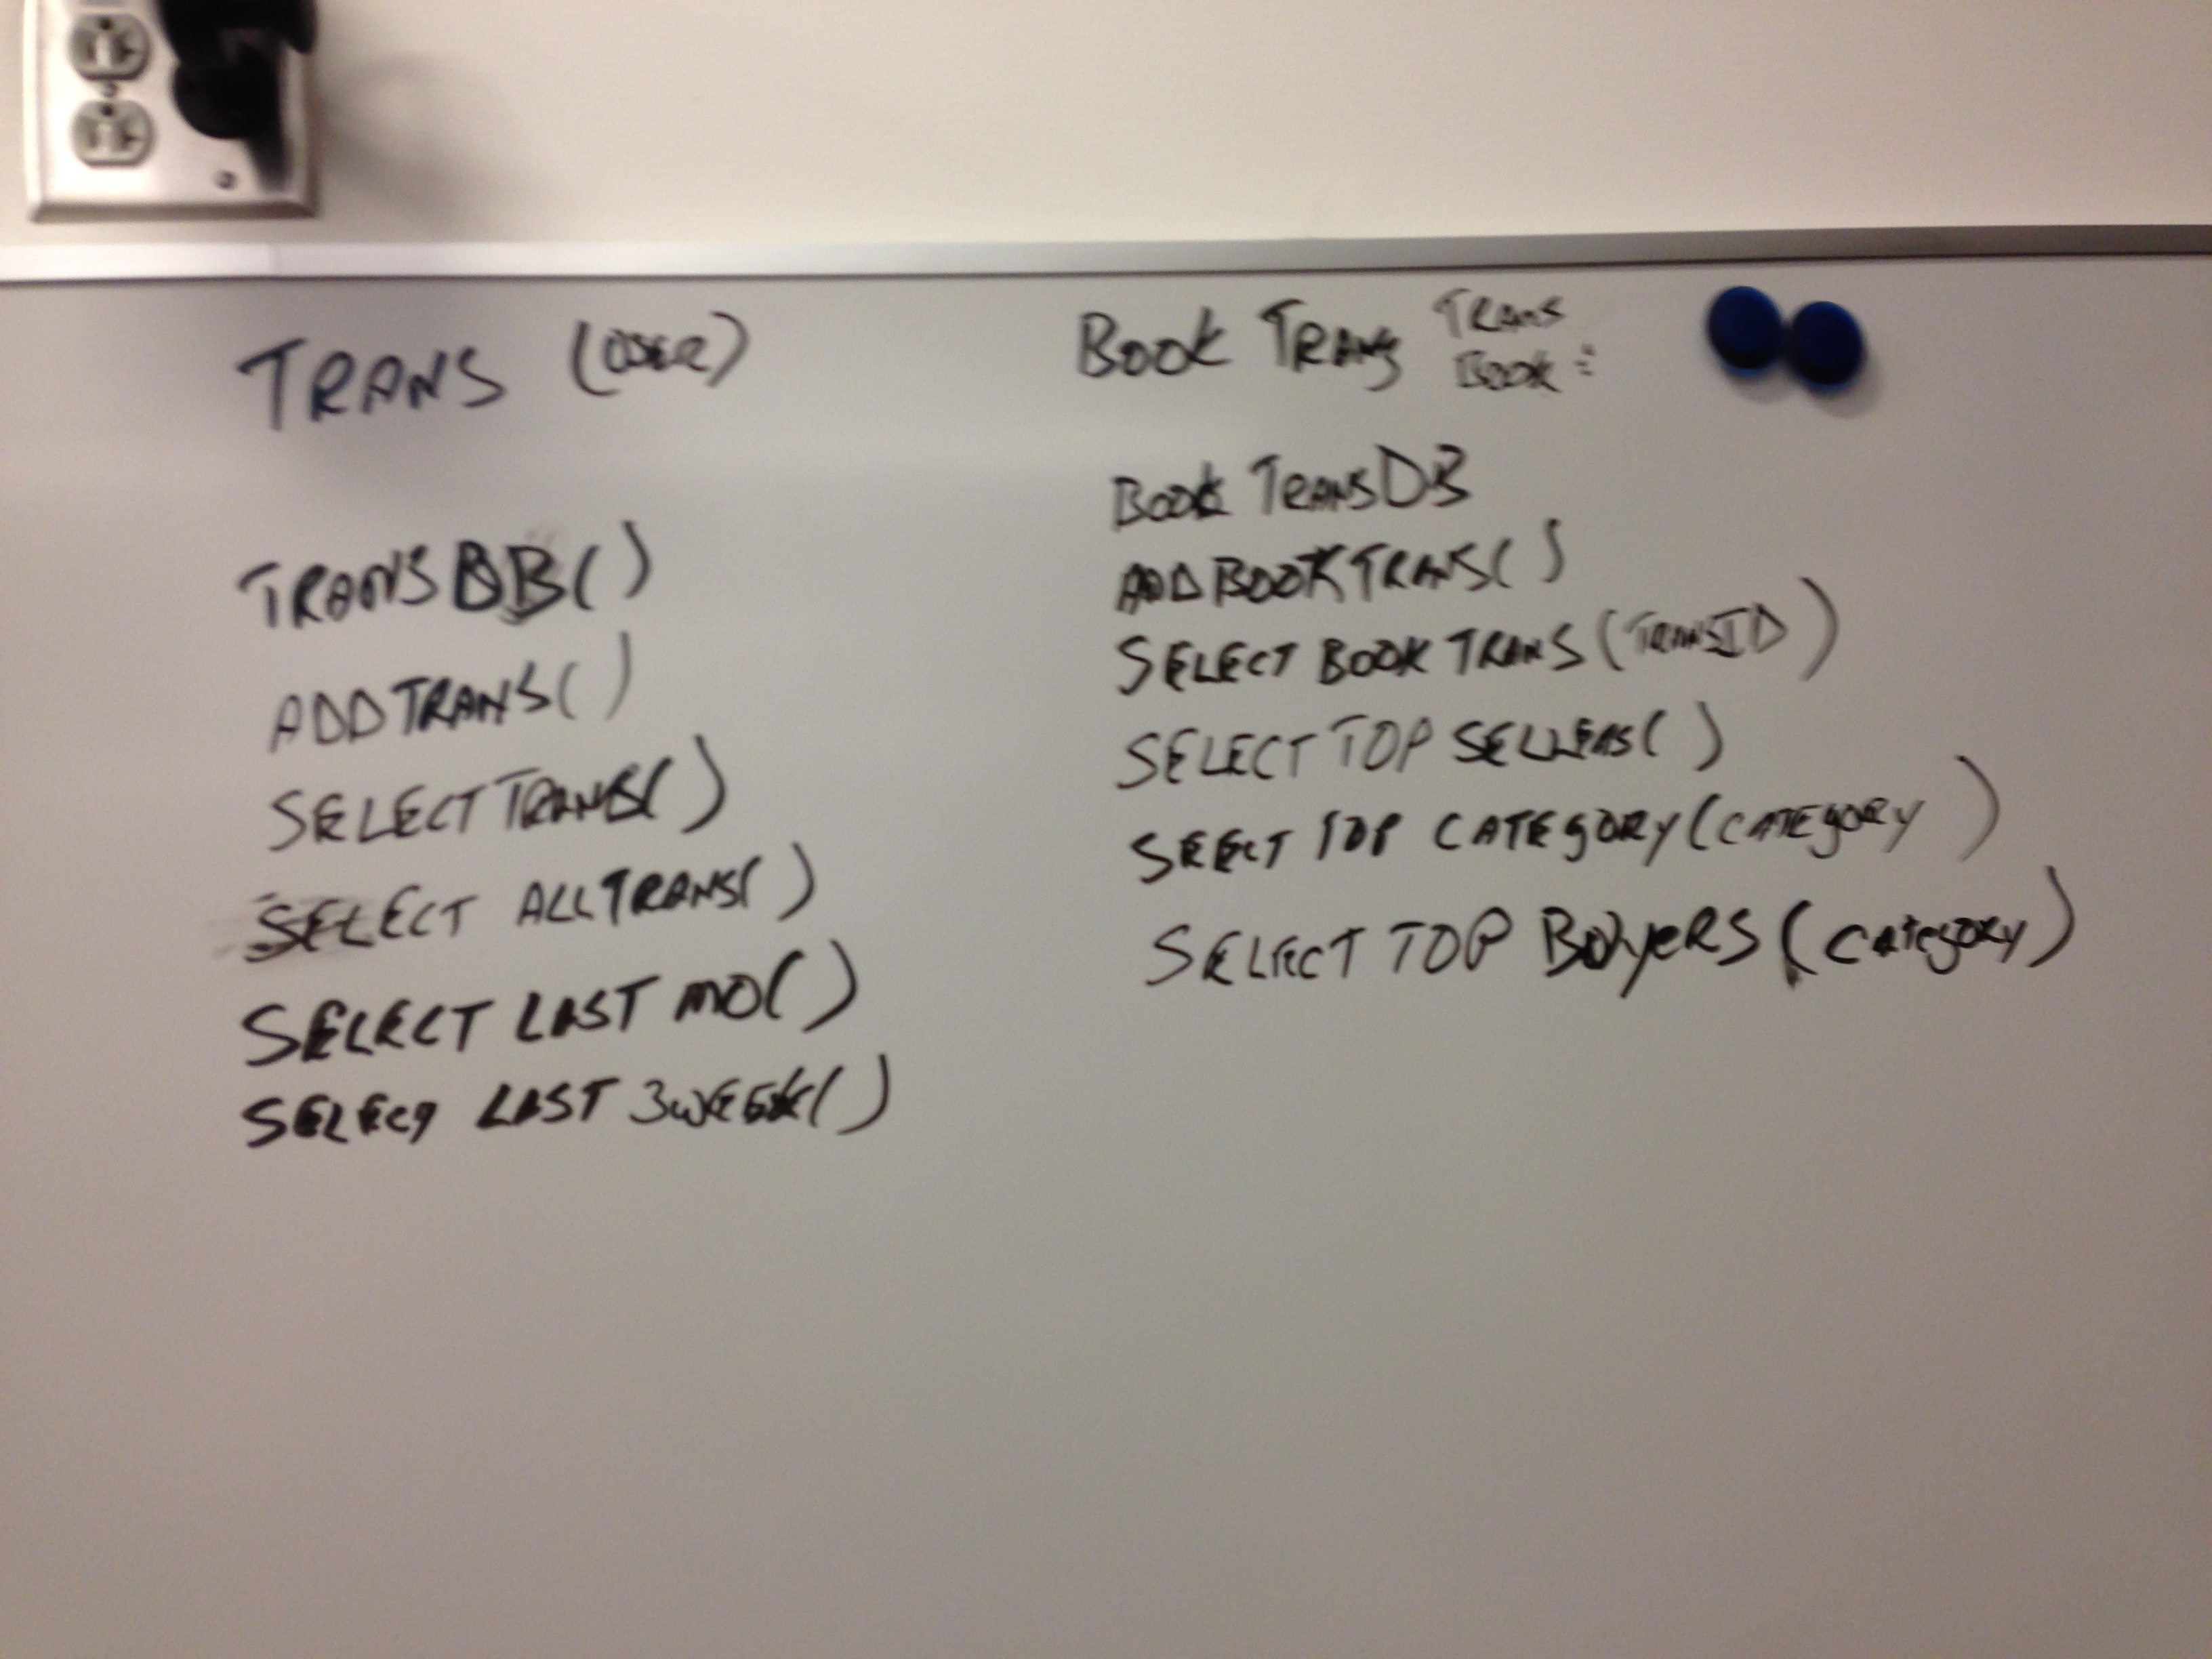 TRANS (USER)
TRANSDB()
ADDTRANS()
SELECTTRANS()
SELECT ALLTRANS()
SELECT LAST MO()
SELECT LAST 3WEEK()
BOOK TRANS
TRANS
BOOK
BOOK TRANSDB
ADDBOOKTRANS()
SELECT BOOK TRANS (TRANSID)
SELECT TOP SELLERS()
SELECT TOP CATEGORY(CATEGORY)
SELECT TOP BUYERS (CATEGORY)